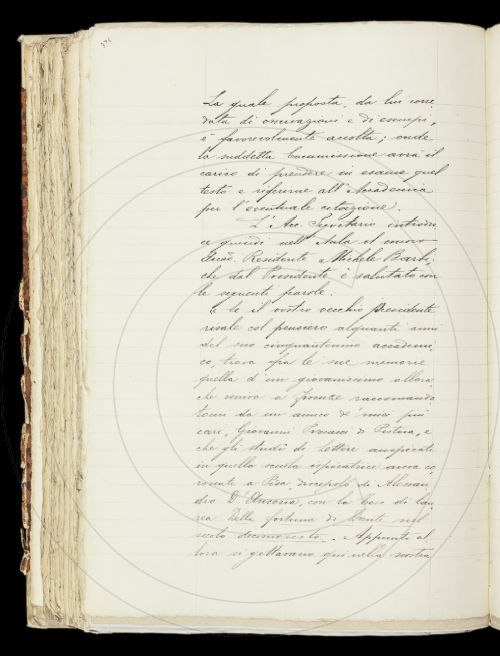 La quale proposta, da lui corre
data di osservazioni e di esempi,
è favorevolmente accolta; onde
la suddetta Commissione avrà il
carico di prendere in esame quel
testo e riferirne all'Accademia
per l'eventuale citazione.
L'Acc. Segretario introdu
ce quindi nell'Aula il nuovo
Accº. Residente Michele Barbi,
che dal Presidente è salutato con
le seguenti parole.
Se il vostro vecchio Presidente
risale col pensiero alquanti anni
del suo cinquantennio accademi
co, trova fra le sue memorie
quella d'un giovanissimo allora
che veniva a Firenze raccomanda
tomi da un amico de' miei più
cari, Giovanni Procacci di Pistoia, e
che gli studi di lettere auspicati
in quella scuola ispiratrice aveva co
ronati a Pisa discepolo di Alessan
dro D'Ancona, con la tesi di lau
rea Della fortuna di Dante nel
secolo decimosesto. Appunto al
lora si gettavano qui nella nostra